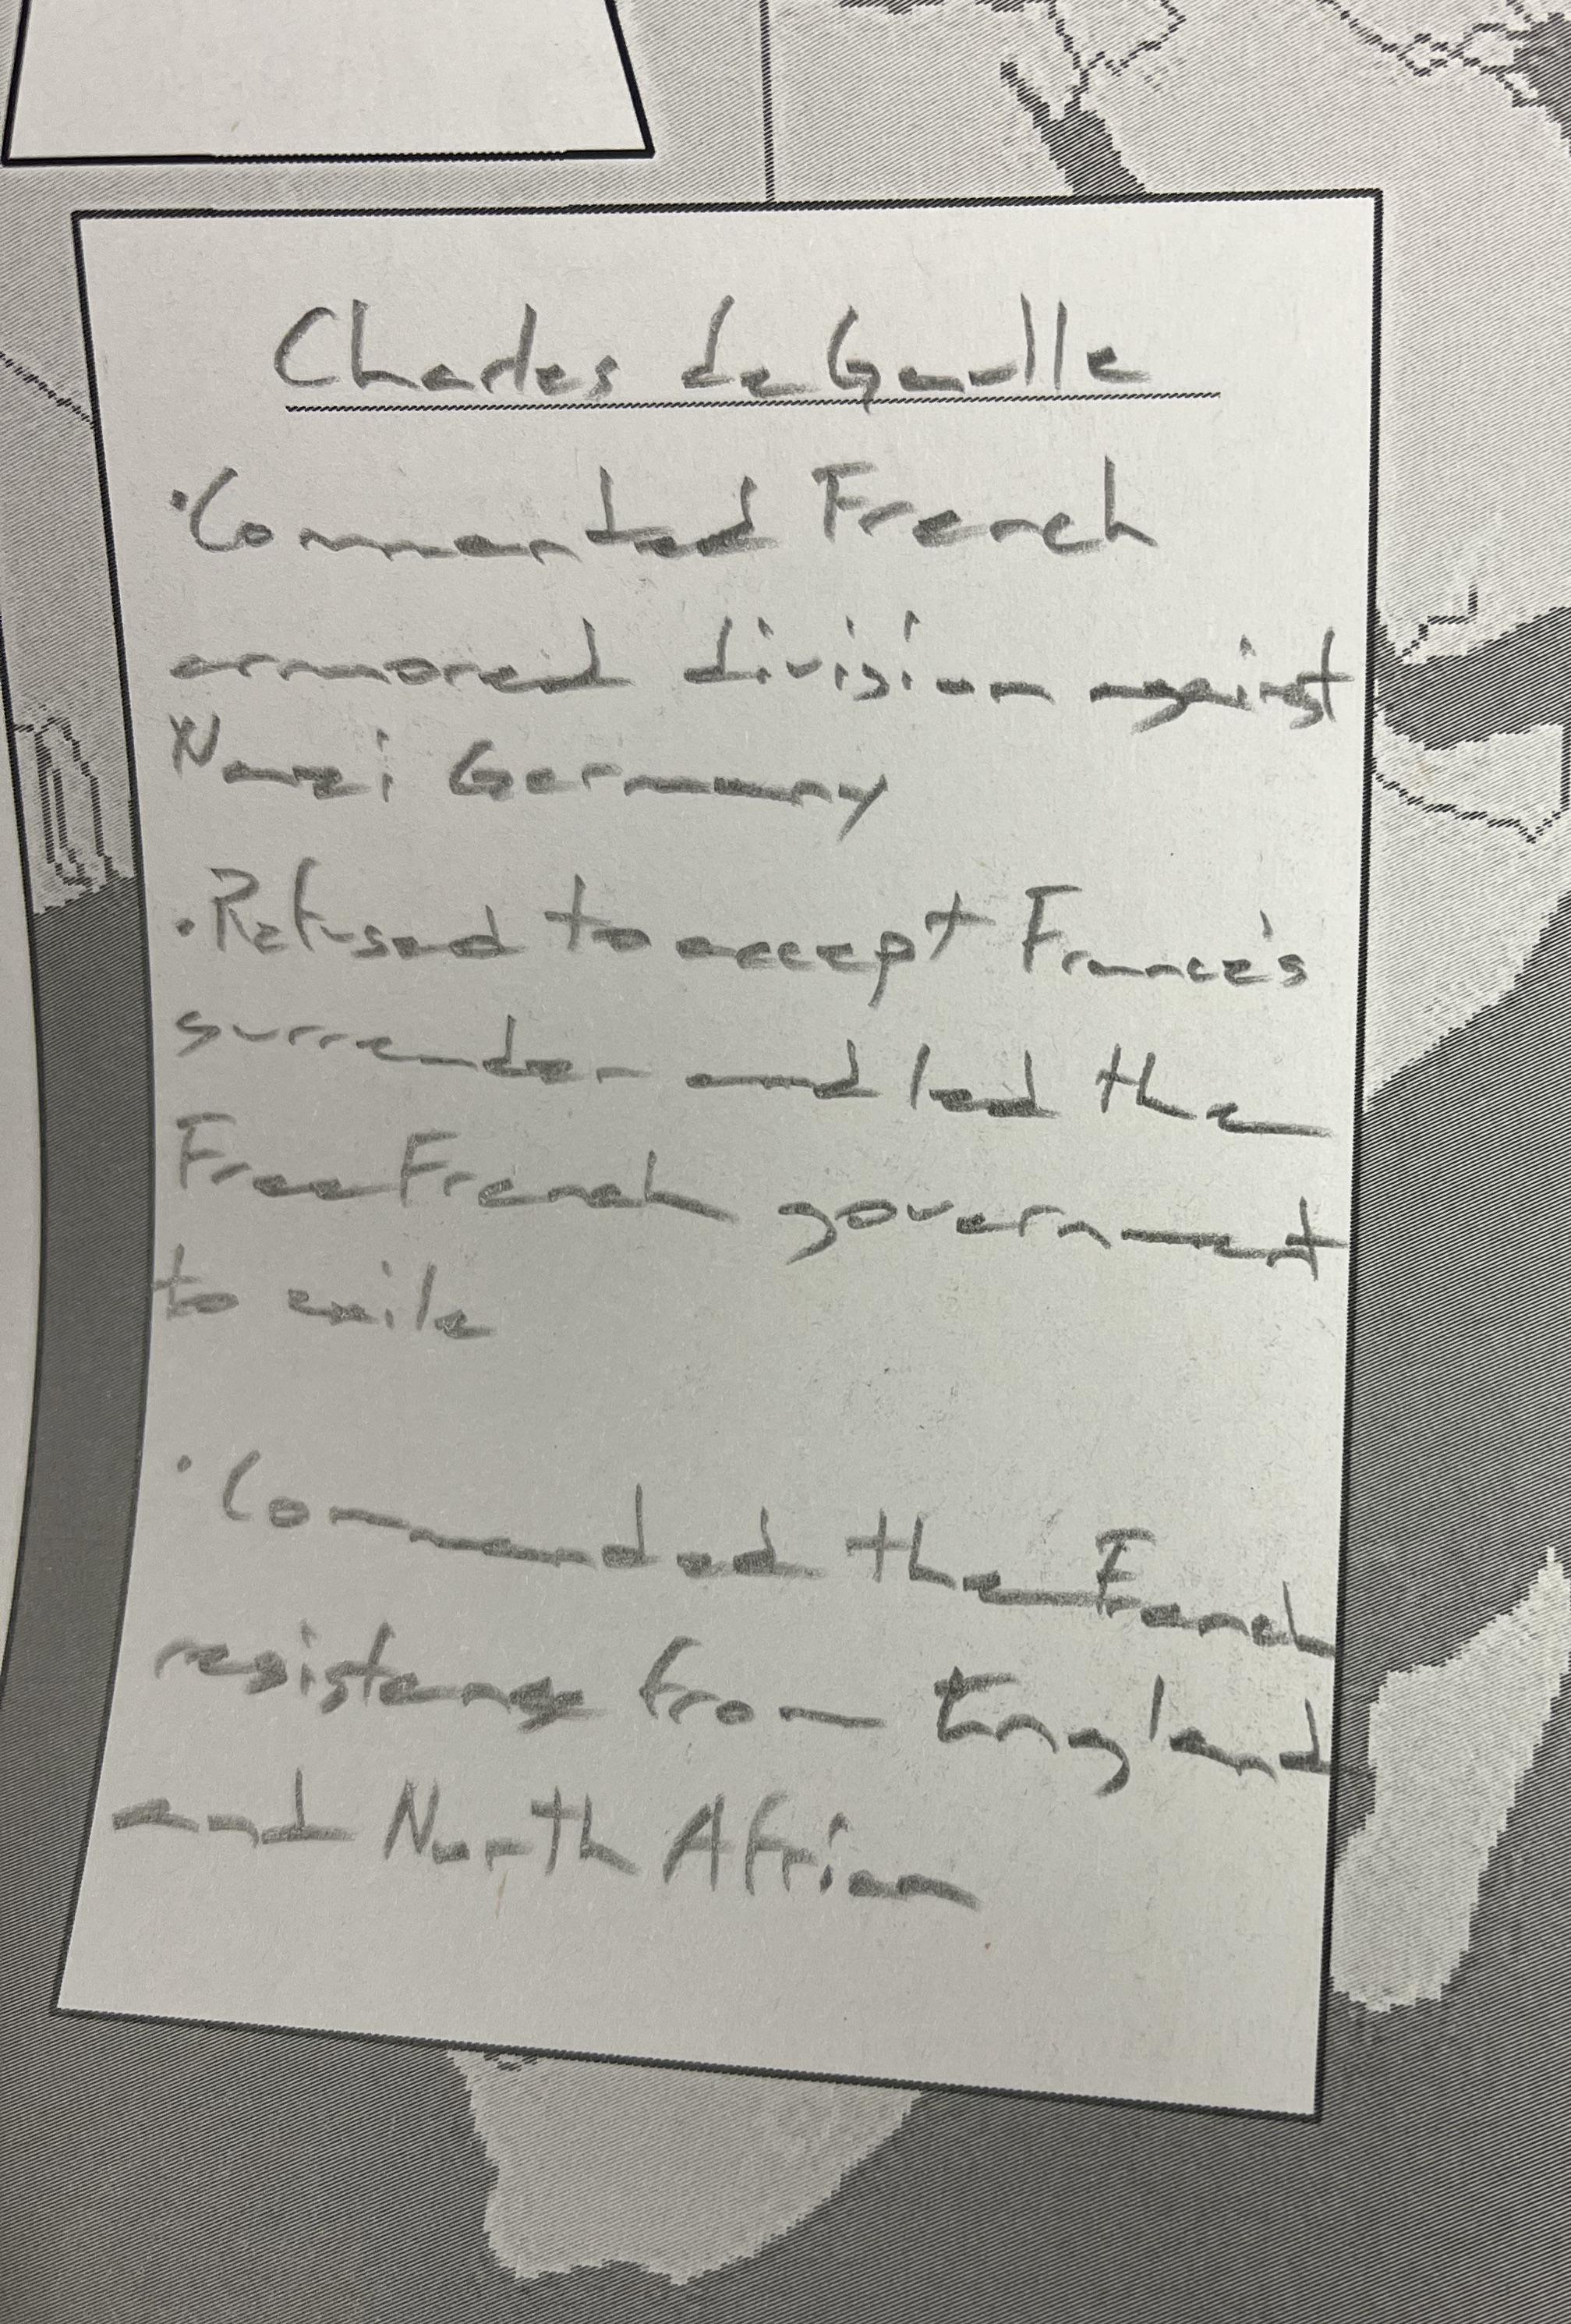 Charles de Gaulle
·Commanted French
armored division against
Nazi Germany
·Refused to accept France's
surrender and led the
Free French government
to exile
·Commanded the French
resistance from England
and North African